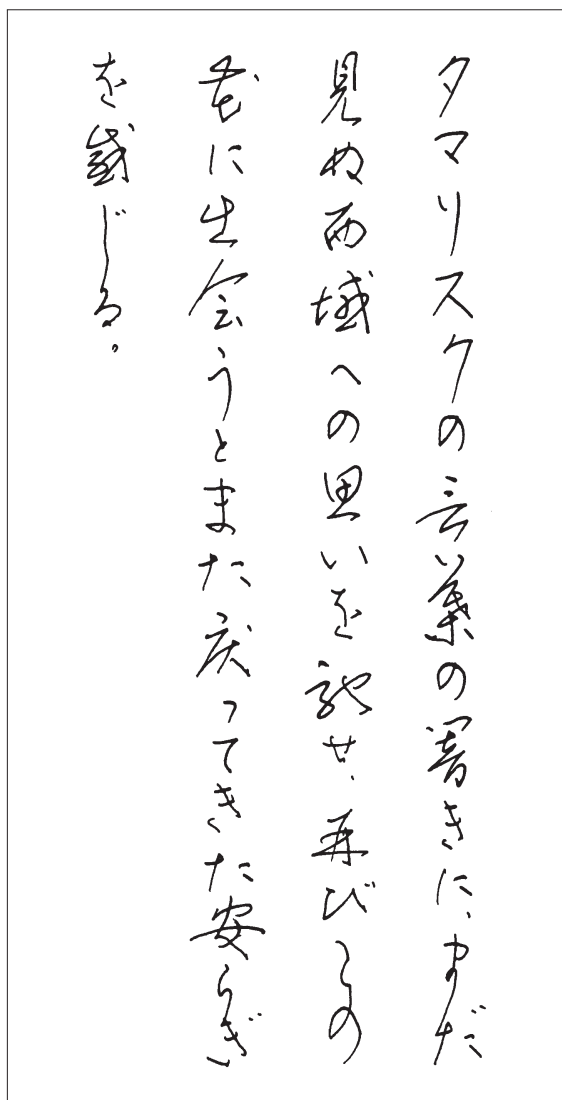 タマリスクの言葉の響きに、まだ
見ぬ西域への思いを馳せ、再びこの
花に出会うとまた戻ってきた安らぎ
を感じる。